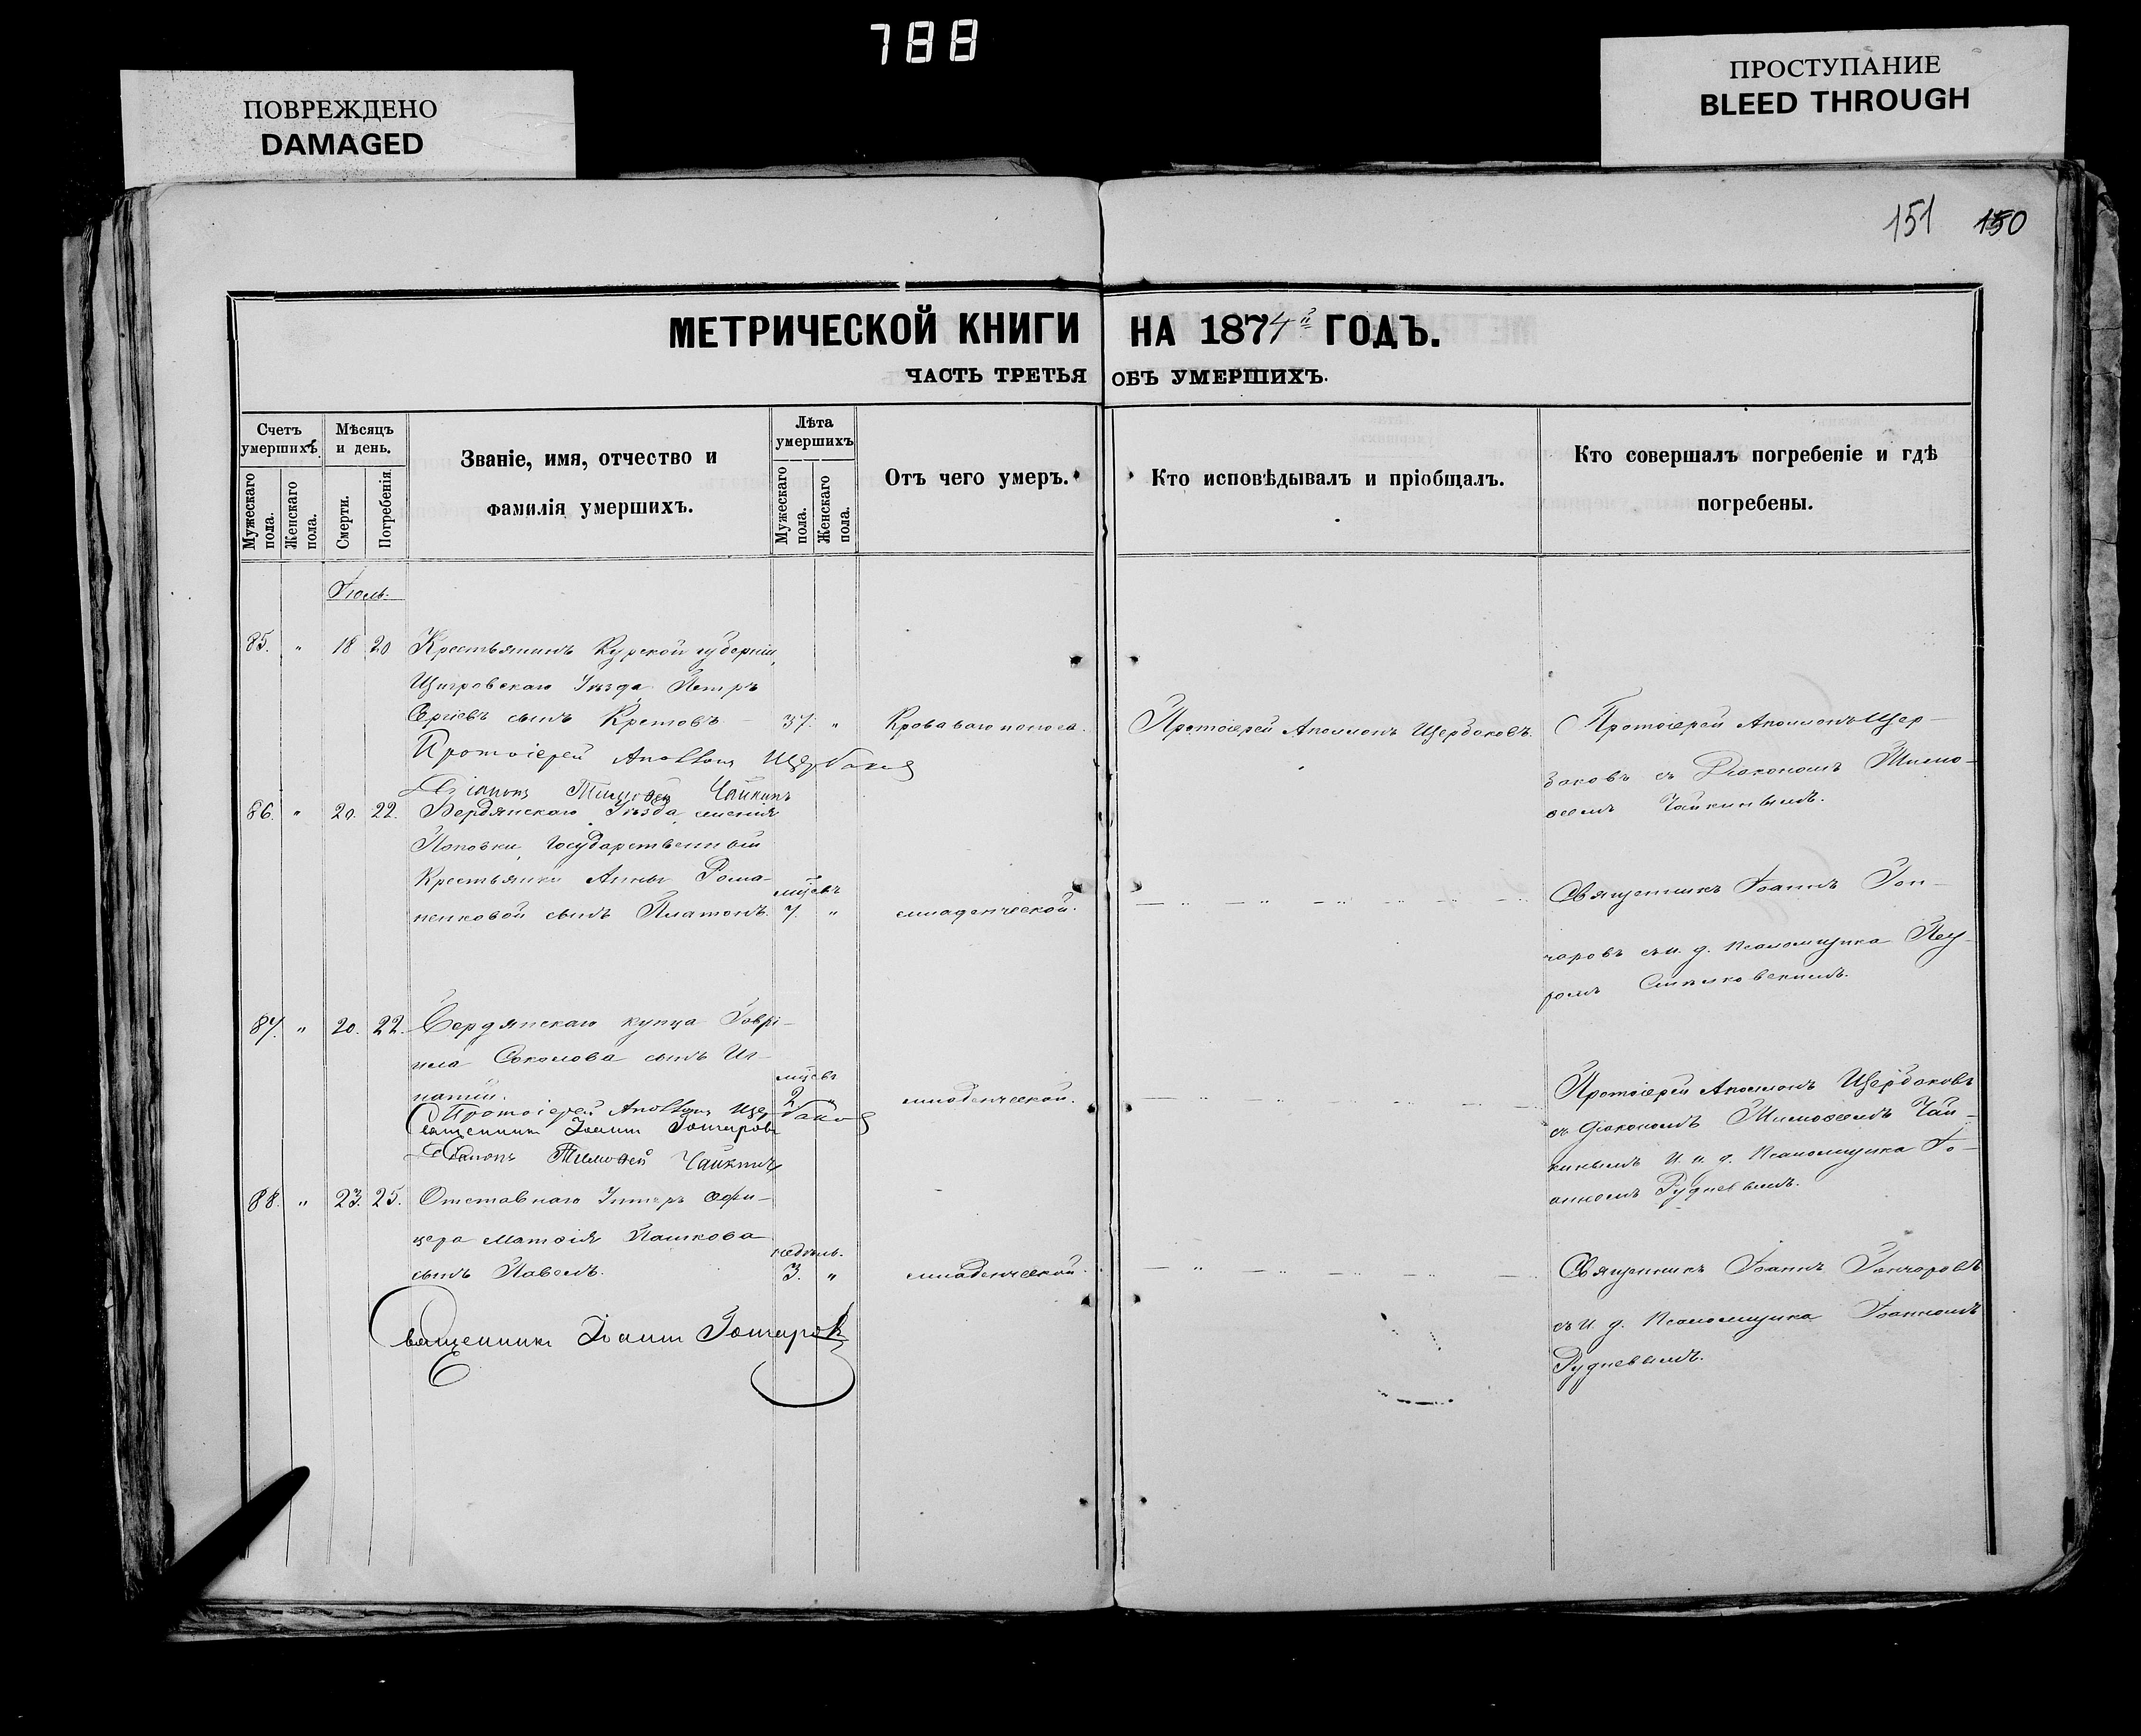 788
ПОВРЕЖДЕНО
DAMAGED
ПРОСТУПАНИЕ
BLEED THROUGH
151 150
МЕТРИЧЕСКОЙ КНИГИ НА 1874й ГОДЪ.
ЧАСТЬ ТРЕТЬЯ ОБЪ УМЕРШИХЪ.
Счетъ умершихъ.
Мужескаго пола.
Женскаго пола.
Мѣсяцъ и день.
Смерти.
Погребенія.
Званіе, имя, отчество и
фамилія умершихъ.
Лѣта умершихъ
Мужескаго пола.
Женскаго пола.
Отъ чего умеръ.
Кто исповѣдывалъ и пріобщалъ.
Кто совершалъ погребеніе и гдѣ
погребены.
Іюль.
85. " 18 20 Крестьянинъ Курской губерніи,
Щигровскаго Уѣзда Петръ
Сергіевъ сынъ Кретовъ 37. " Кроваваго поноса.
Протоіерей Аполлонъ Щербаковъ.
Протоіерей Аполлонъ Щер-
баковъ съ Діакономъ Тимо-
ѳеемъ Чайкинымъ.
Протоіерей Аполлонъ Щербаковъ
Діаконъ Тимоѳей Чайкинъ
86. " 20. 22. Бердянскаго Уѣзда, селенія
Поповки, Государственной
Крестьянки Анны Рома-
ненковой сынъ Платонъ. мѣцевъ 7. " младенческой.
Священникъ Іоаннъ Гон-
чаровъ съ и. д. Псаломщика Пет-
ромъ
87. " 20. 22. Бердянскаго купца Гаврі-
ила Соколова сынъ Иг-
натій. мѣцевъ 2 " младенческой.
Протоіерей Аполлонъ Щербаковъ
съ Діакономъ Тимоѳеемъ Чай-
кинымъ и и. д. Псаломщика Іо-
анномъ Рудневымъ.
Протоіерей Аполлонъ Щербаковъ
Священникъ Іоаннъ Гончаровъ
Діаконъ Тимоѳей Чайкинъ
88. " 23. 25. Отставнаго Унтеръ Офи-
цера Матѳія Пашкова
сынъ Павелъ. недѣль. 3. " младенческой.
Священникъ Іоаннъ Гончаровъ
съ и. д. Псаломщика Іоанномъ
Рудневымъ.
Священникъ Іоаннъ Гончаровъ